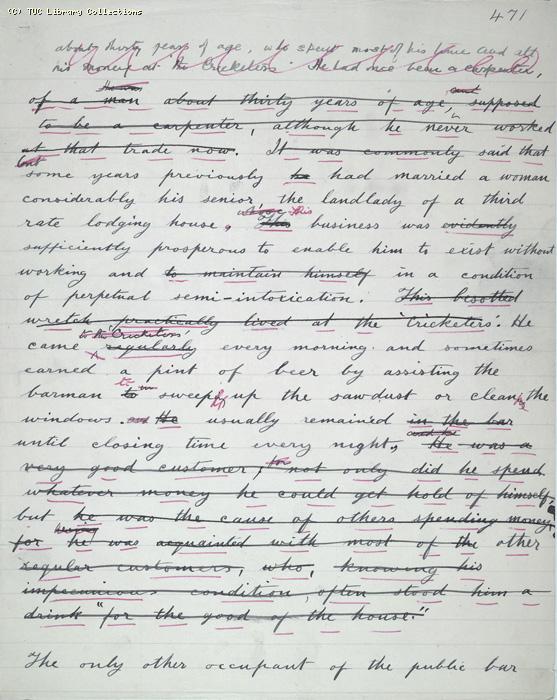 (C) TUC Library Collections
471
about thirty years of age, who spent most of his time and all
his money at the Cricketers. He had once been a carpenter,
of a man about thirty years of age, supposed
and
to be a carpenter, although he never worked
at that trade now. It was commonly said that
but
some years previously he had married a woman
considerably his senior, the landlady of a third
whose this
rate lodging house, This business was evidently
sufficiently prosperous to enable him to exist without
working and to maintain himself in a condition
of perpetual semi-intoxication. This besotted
wretch practically lived at the 'Cricketers'. He
to the Cricketers
came regularly every morning and sometimes
earned a pint of beer by assisting the
barman to sweep up the sawdust or clean the
windows. and He usually remained in the bar
and he
until closing time every night, He was a
very good customer, for not only did he spend
whatever money he could get hold of himself,
but he was the cause of others spending money,
being
for he was acquainted with most of the other
regular customers, who, knowing his
impecunious condition, often stood him a
drink "for the good of the house."
The only other occupant of the public bar